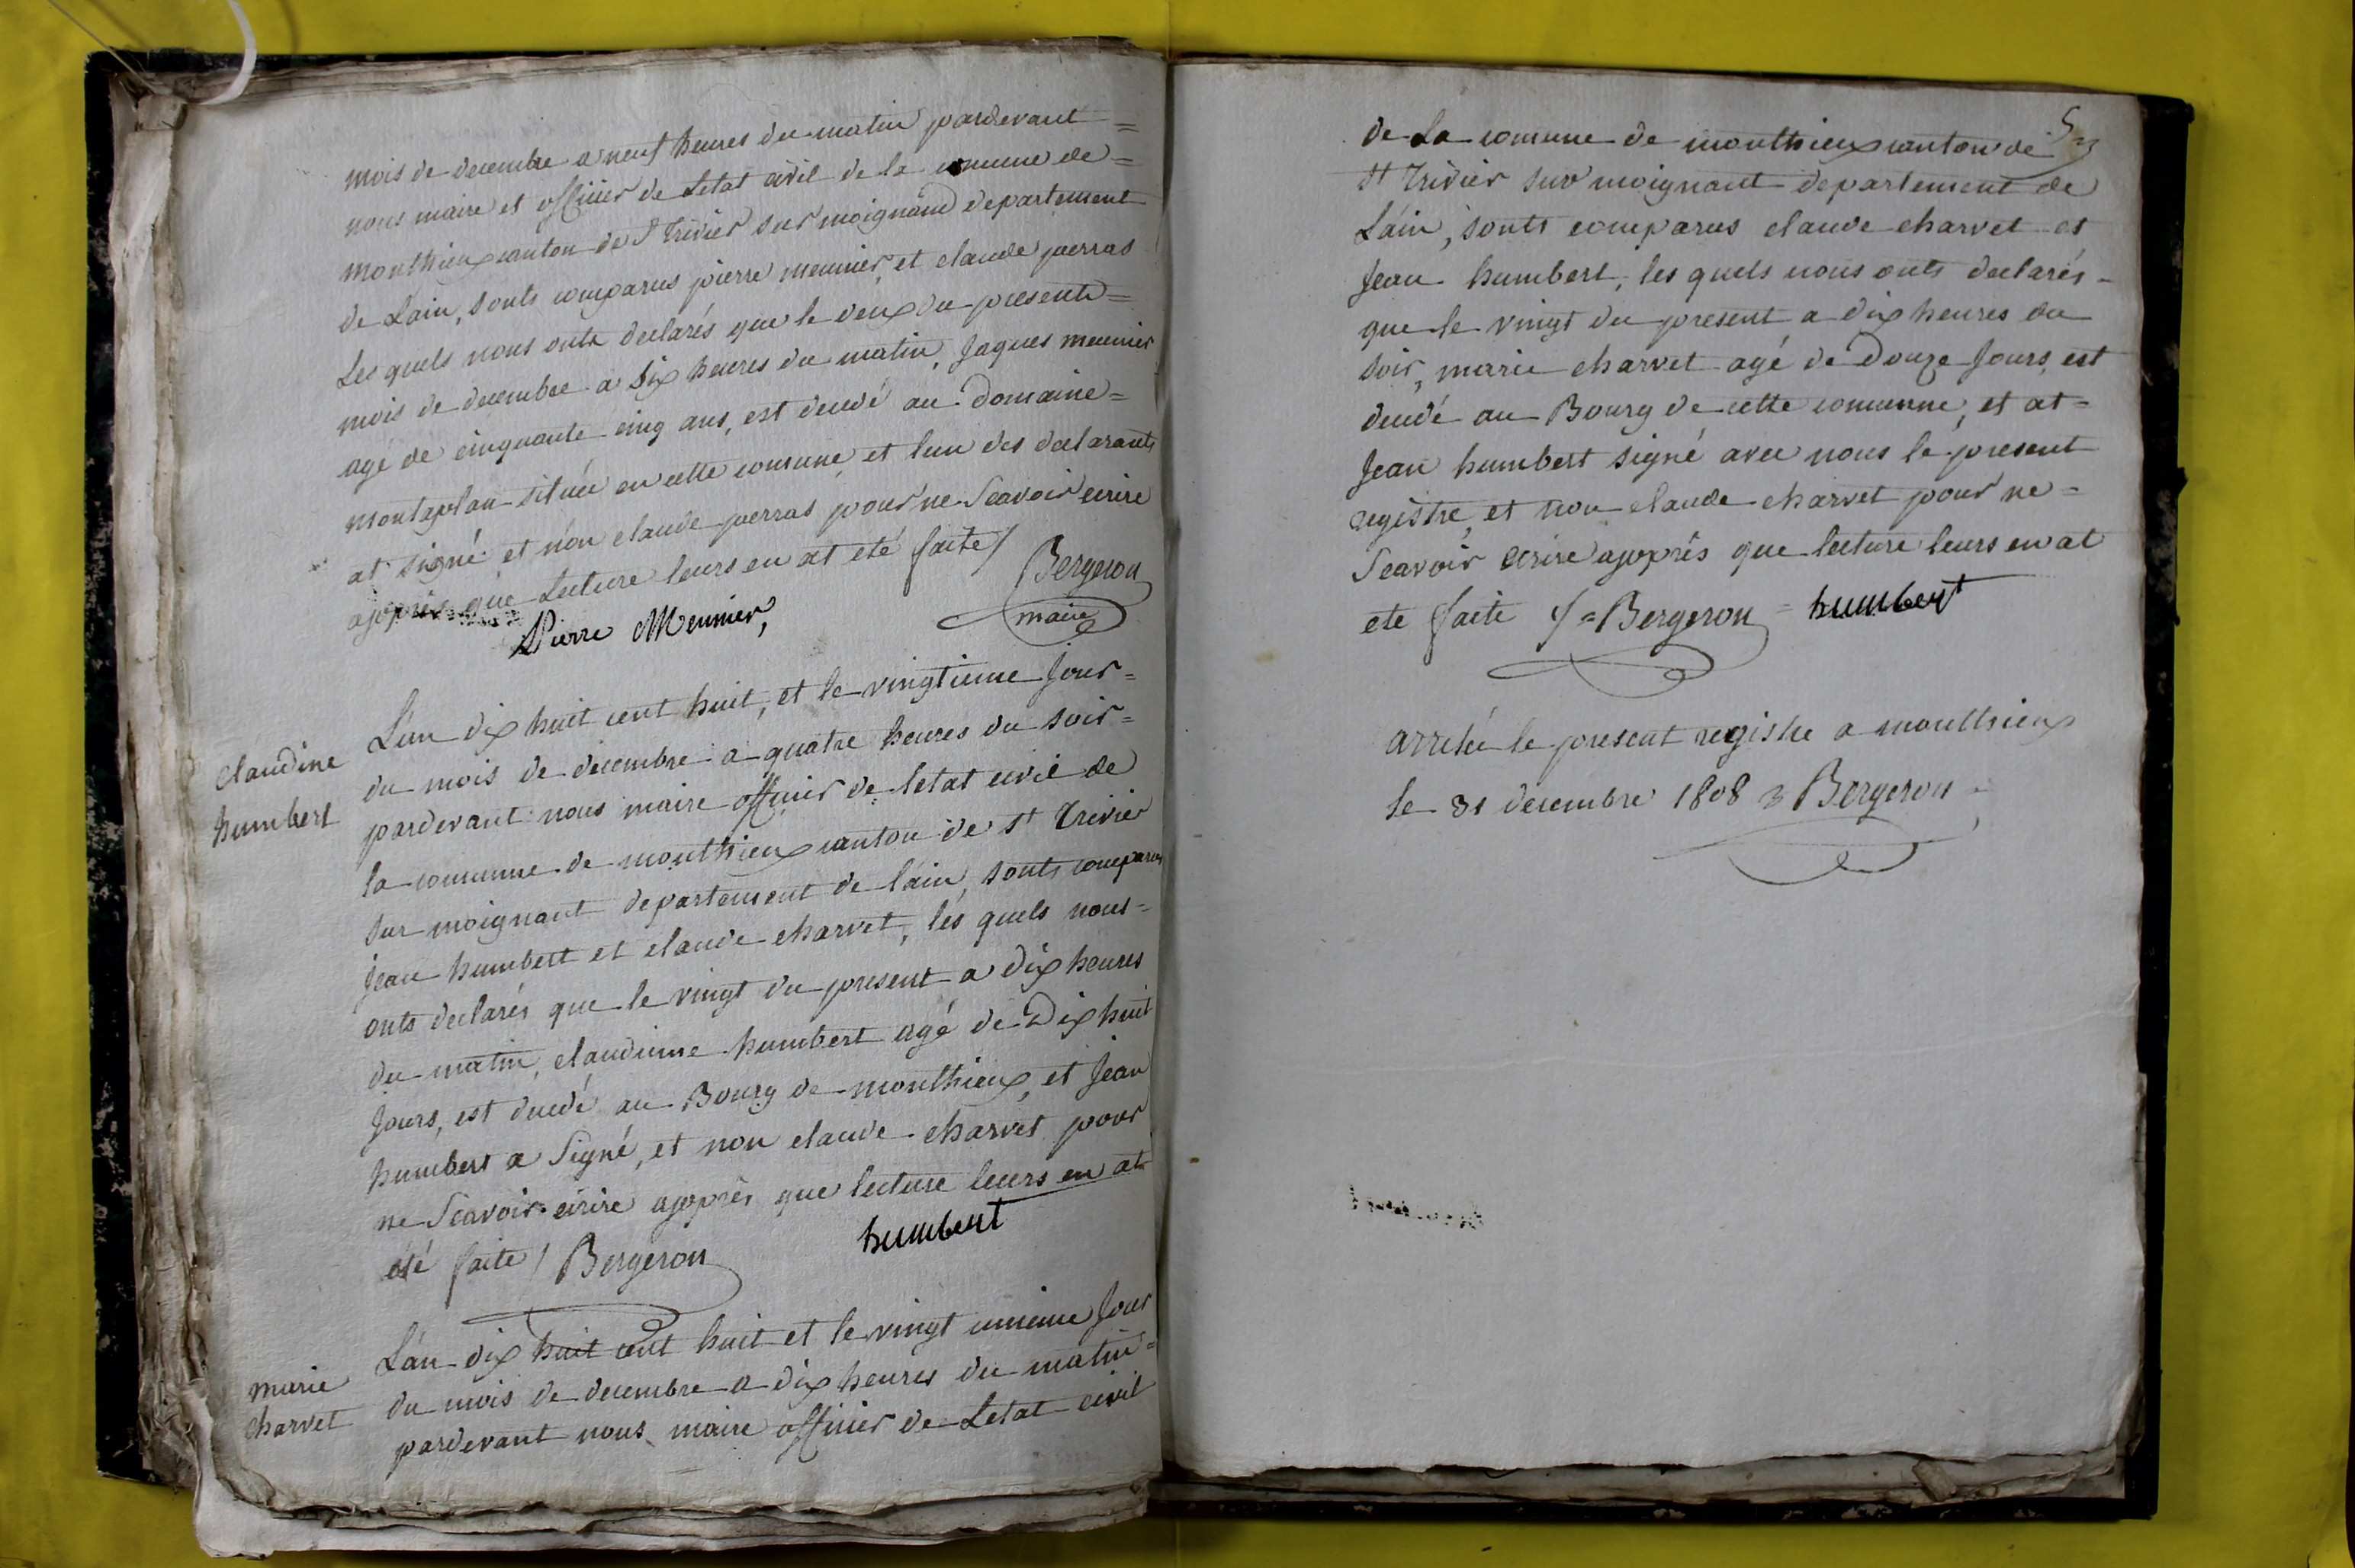 mois de decembre a neuf heures du matin pardevant =
nous maire et officier de Letat civil de la comune de =
monthieux canton de St trivier sur moignand departement
de Lain, sonts comparus pierre meunier, et claude perras
Les quels nous onts declarés que le deux du present =
mois de decembre a six heures du matin, Jaques meunier
agé de cinquante cinq ans, est decedé au Domaine =
montaplan située en cette comune et lun des declarants
at signé et non claude perras pour ne Scavoir ecrire
apprés que Lecture leurs en at eté faite /
Bergeron
maire
Pierre Meunier,
claudine
humbert
L'an dix huit cent huit, et le vingtieme Jour =
du mois de decembre a quatre heures du soir =
pardevant nous maire officier de letat civil de
la commune de monthieux canton de st trivier
sur moignant departement de láin, sonts comparus
Jean humbert et claude charvet, lés quels nous =
onts declarés que le vingt du present a dix heures
du matin, claudinne humbert agé de Dix huit
Jours, est decedé au Bourg de monthieux, et Jean
humbert a Signé, et non claude charvet pour
ne Scavoir ecrire apprés que lecture leurs en at
été faite / Bergeron
humbert
marie
charvet
L'an dix huit cent huit et le vingt unieme Jour
du mois de decembre a dix heures du matin =
pardevant nous maire officier de Letat civil
de La comune de monthieux canton de
st trivier sur moignant departement de
Láin, sonts comparus claude charvet et
Jean humbert, les quels nous onts declarés -
que le vingt du present a dix heures du
soir, marie charvet agé de Douze Jours, est
decedé au Bourg de cette commune, et at =
Jean humbert signé avec nous le present
registre, et non claude charvet pour ne =
Scavoir ecrire apprés que lecture leurs en at
ete faite /= Bergeron = humbert
arretée le present registre a monthieux
le 31 decembre 1808 Bergeron